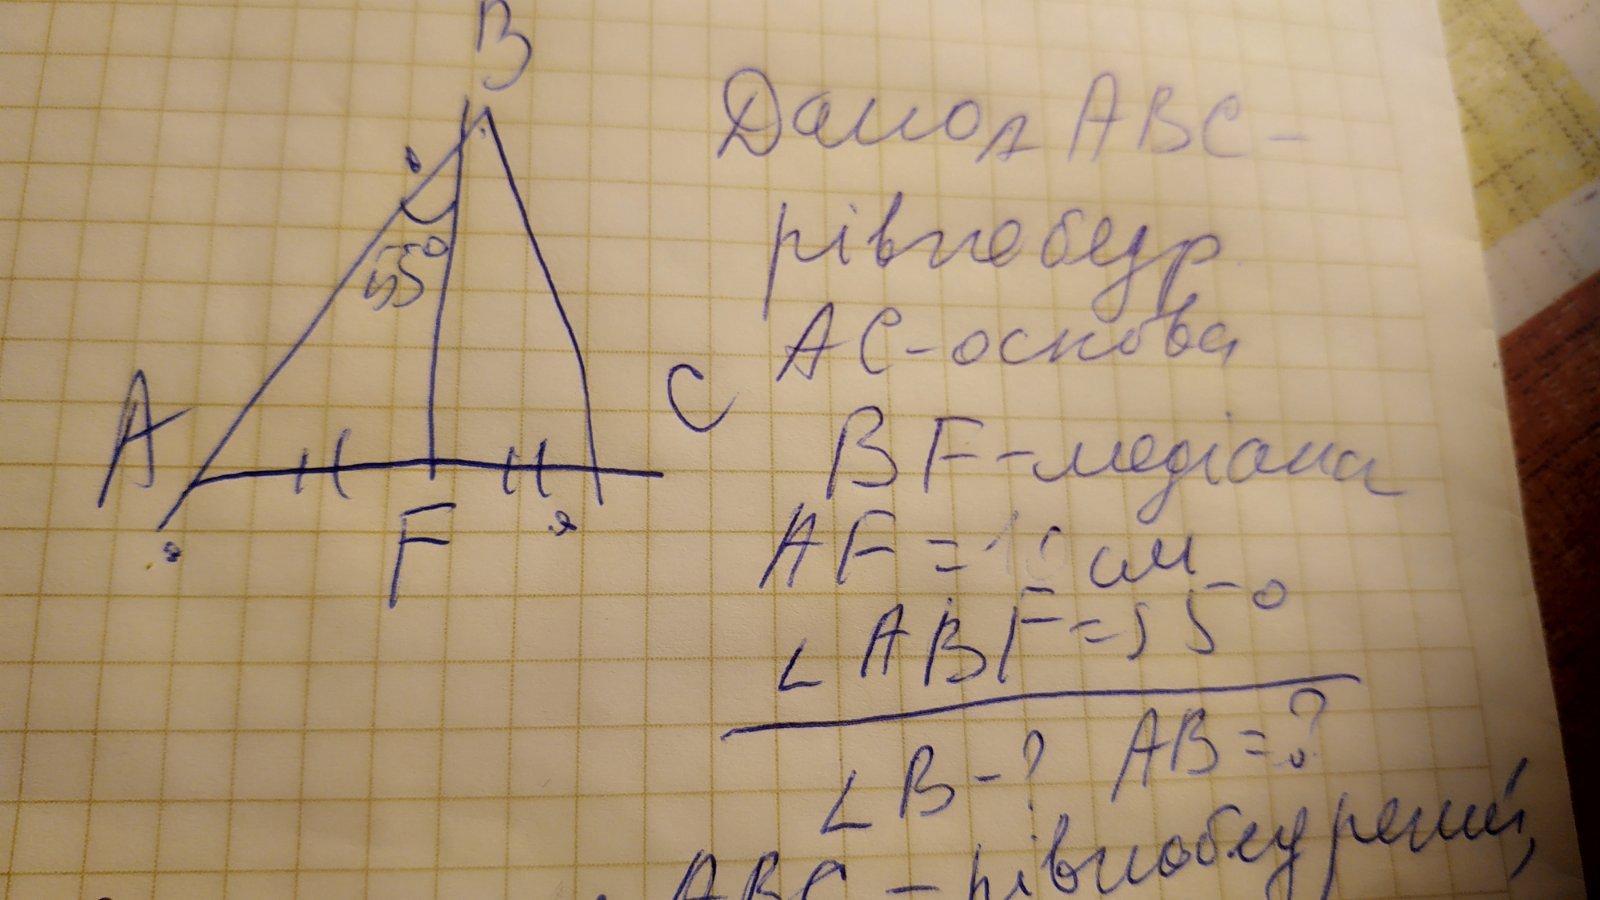 B
55°
A
C
F
Дано Δ ABC -
рівнобедр.
AC - основа
BF - медіана
AF = 10 см
∠ ABF = 55°
∠ B - ? AB = ?
ABC - рівнобедрений,